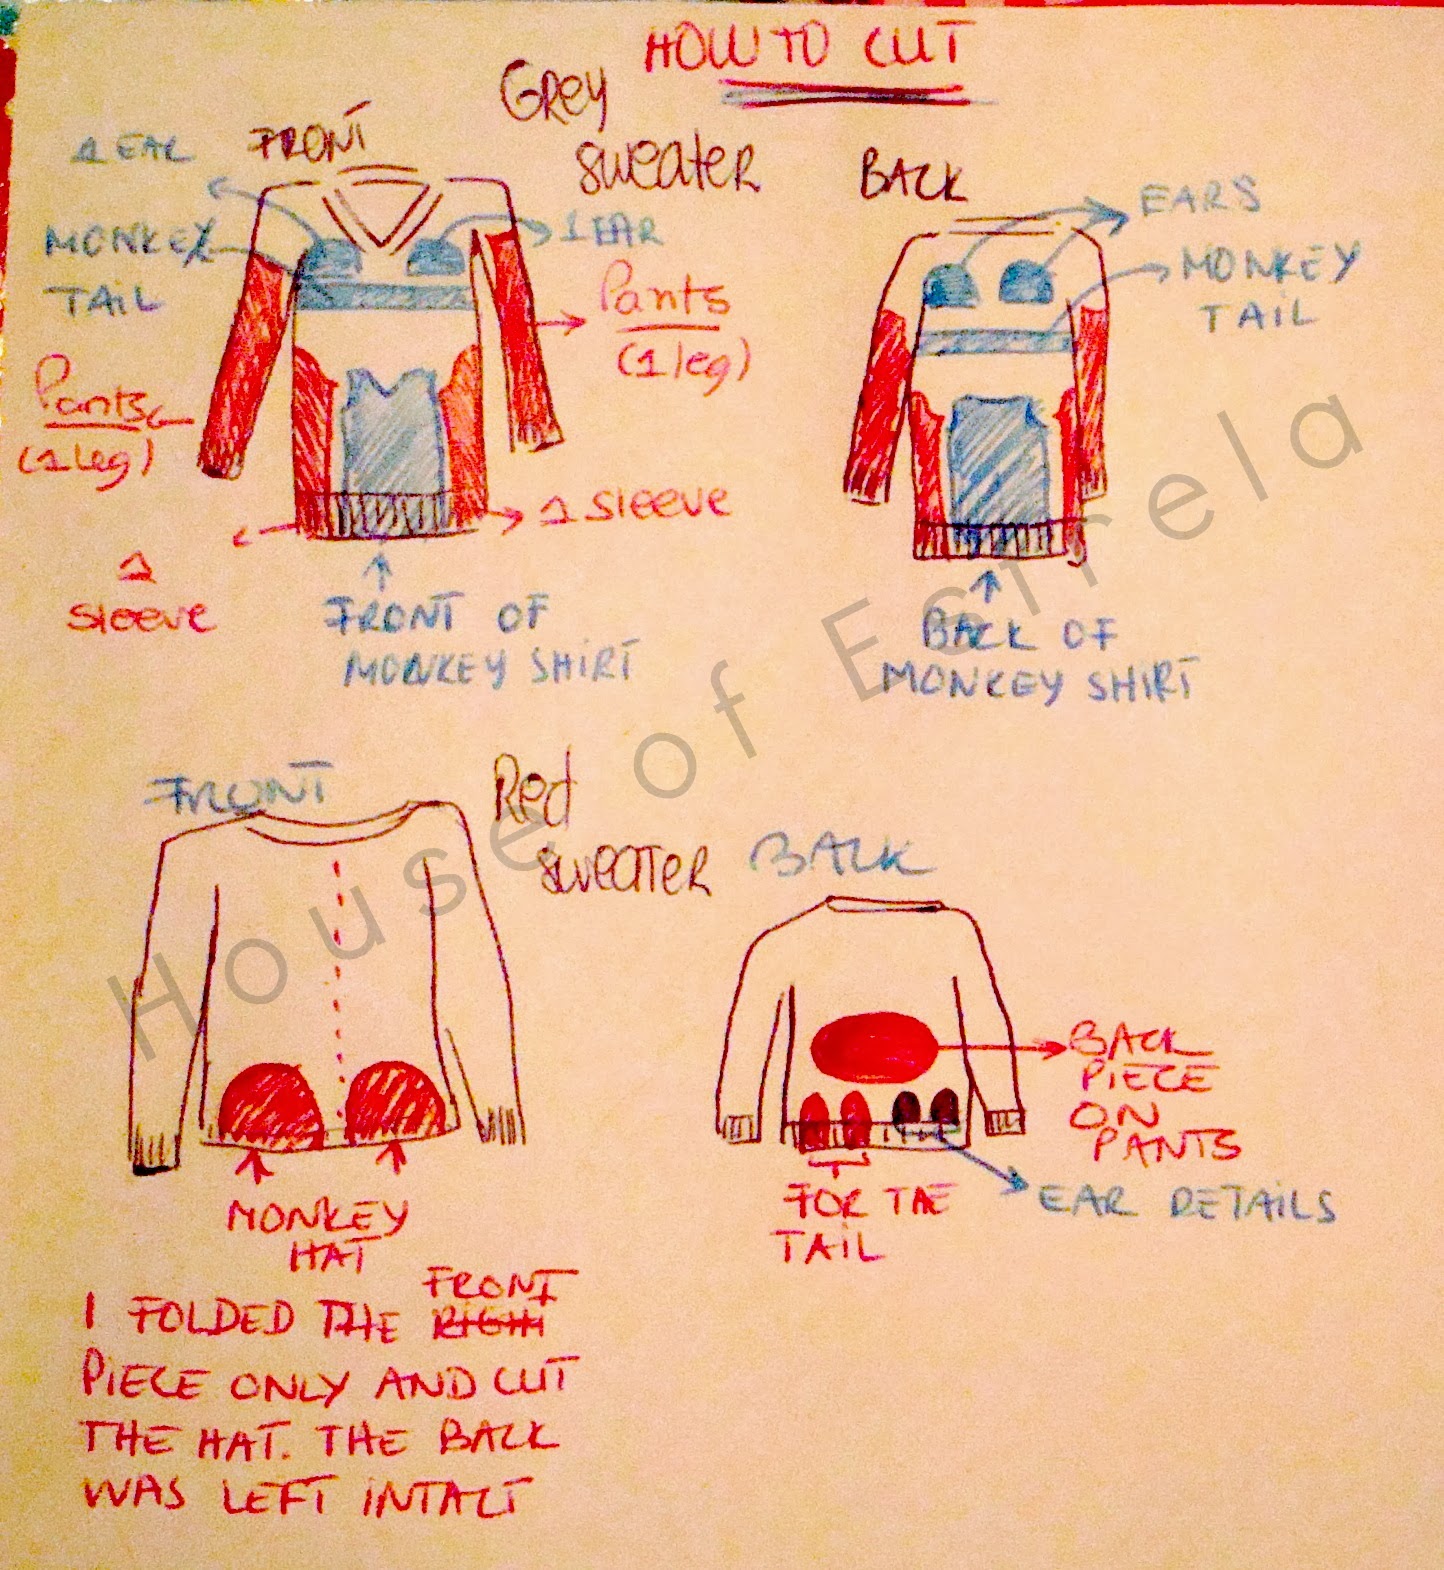 HOW TO CUT
GREY
SWEATER
FRONT
1 EAR
MONKEY
TAIL
1 EAR
Pants
(1 leg)
Pants
(1 leg)
1 SLEEVE
1
SLEEVE
FRONT OF
MONKEY SHIRT
BACK
EARS
MONKEY
TAIL
BACK OF
MONKEY SHIRT
FRONT
Red
SWEATER
MONKEY
HAT
BACK
BACK
PIECE
ON
PANTS
FOR THE
TAIL
EAR DETAILS
I FOLDED THE RIGHT FRONT
PIECE ONLY AND CUT
THE HAT. THE BACK
WAS LEFT INTACT
House of Estrela